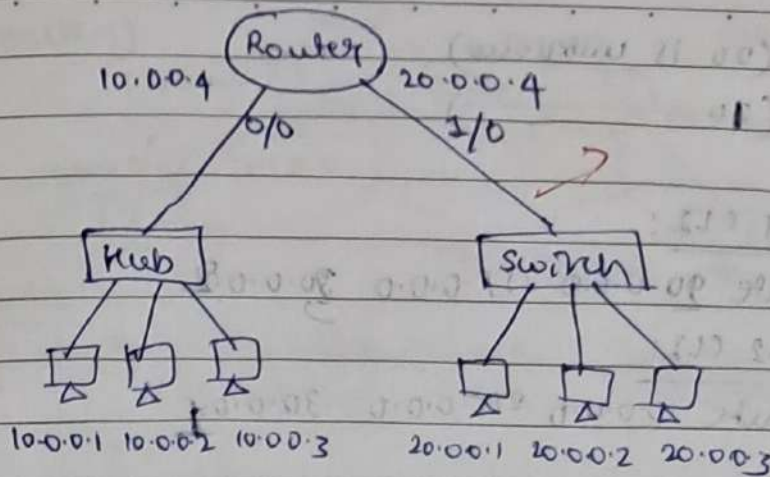 Router
10.0.0.4 20.0.0.4
0/0 1/0
Hub Switch
10.0.0.1 10.0.0.2 10.0.0.3 20.0.0.1 20.0.0.2 20.0.0.3